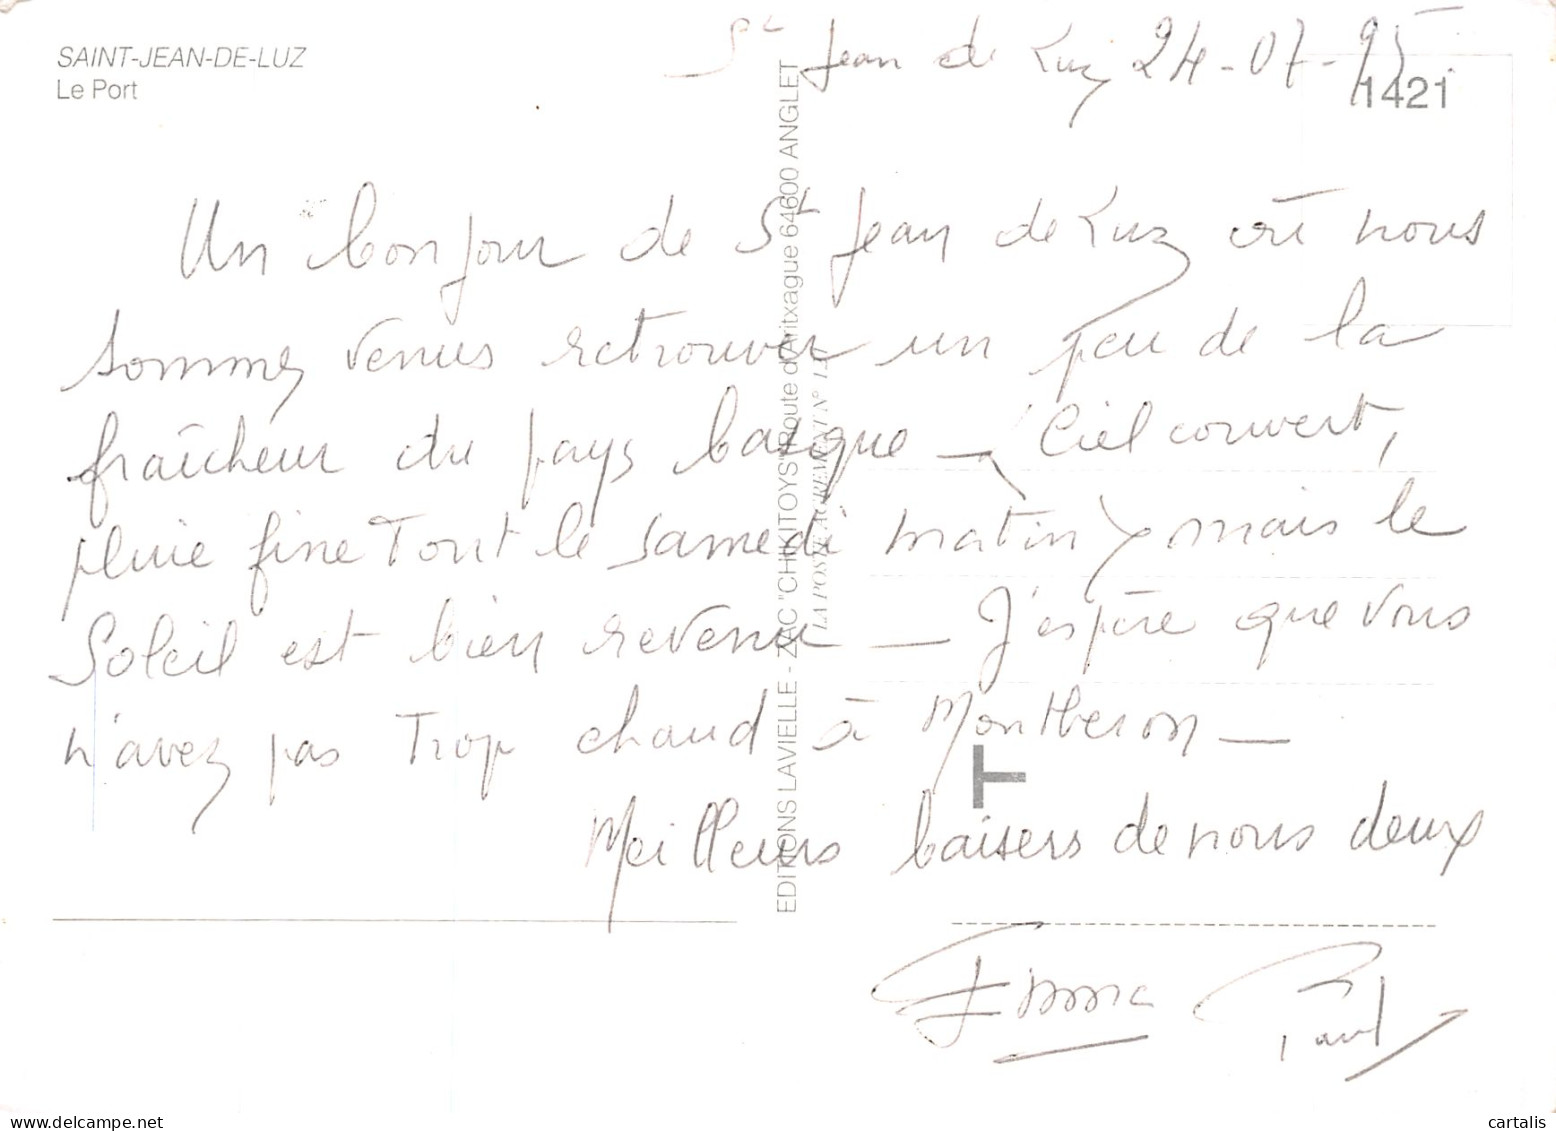 SAINT-JEAN-DE-LUZ
Le Port
St Jean de Luz 24-07-95
1421
Un bonjour de St Jean de Luz où nous
sommes venus retrouver un peu de la
fraîcheur du pays basque - (Ciel couvert,
pluie fine Tout le samedi matin) mais le
Soleil est bien revenu - J'espère que vous
n'avez pas Trop chaud à Montberon -
Meilleurs baisers de nous deux
Paul
EDITIONS LAVIELLE - ZAC "CHIKITOYS" Route d'Aritxague 64600 ANGLET
LA POSTE AGREMENT N°
T
delcampe.net
cartalis